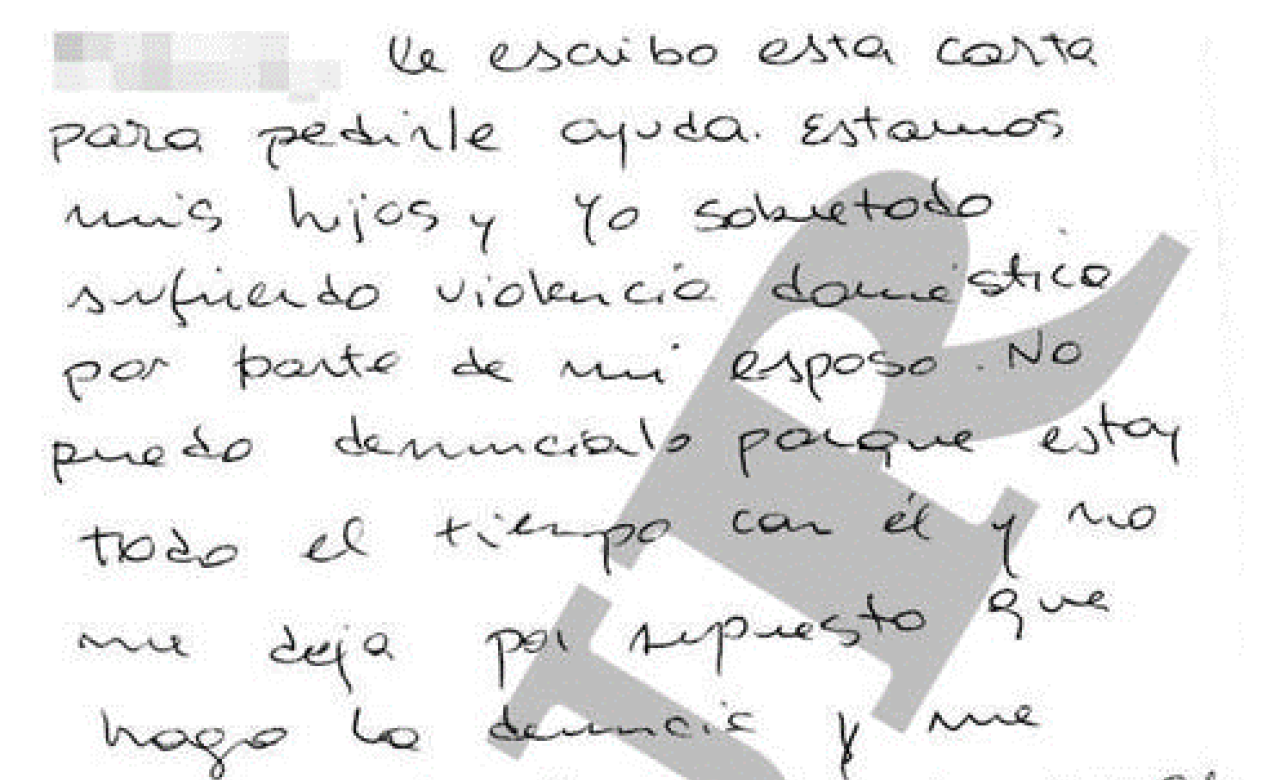 Le escribo esta carta
para pedirle ayuda. Estamos
mis hijos y Yo sobretodo
sufriendo violencia doméstica
por parte de mi esposo. No
puedo denuncialo porque estoy
todo el tiempo con él y no
me deja por supuesto que
haga la denuncia y me